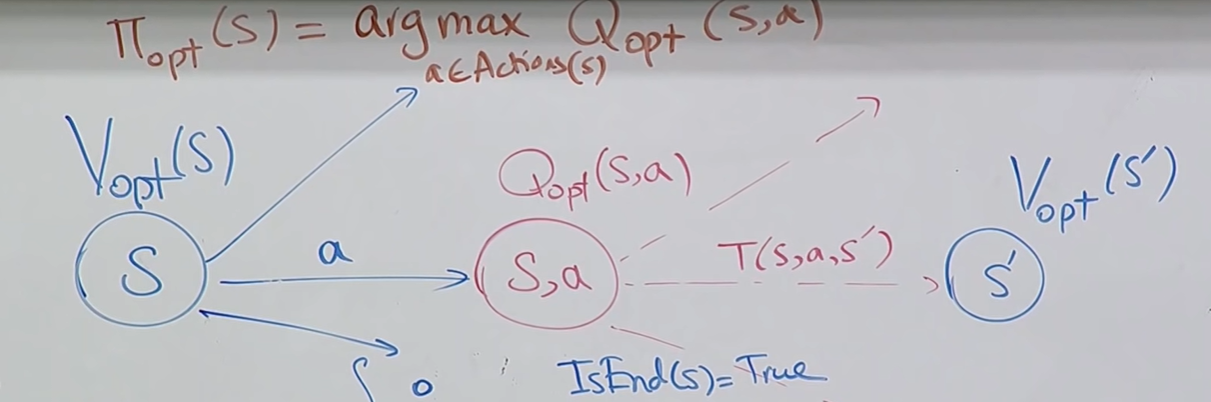 π_opt(s) = argmax Q_opt(s,a)
a∈Actions(s)
V_opt(s)
Q_opt(s,a)
V_opt(s′)
S
a
S,a
T(s,a,s′)
s′
0
IsEnd(s)=True